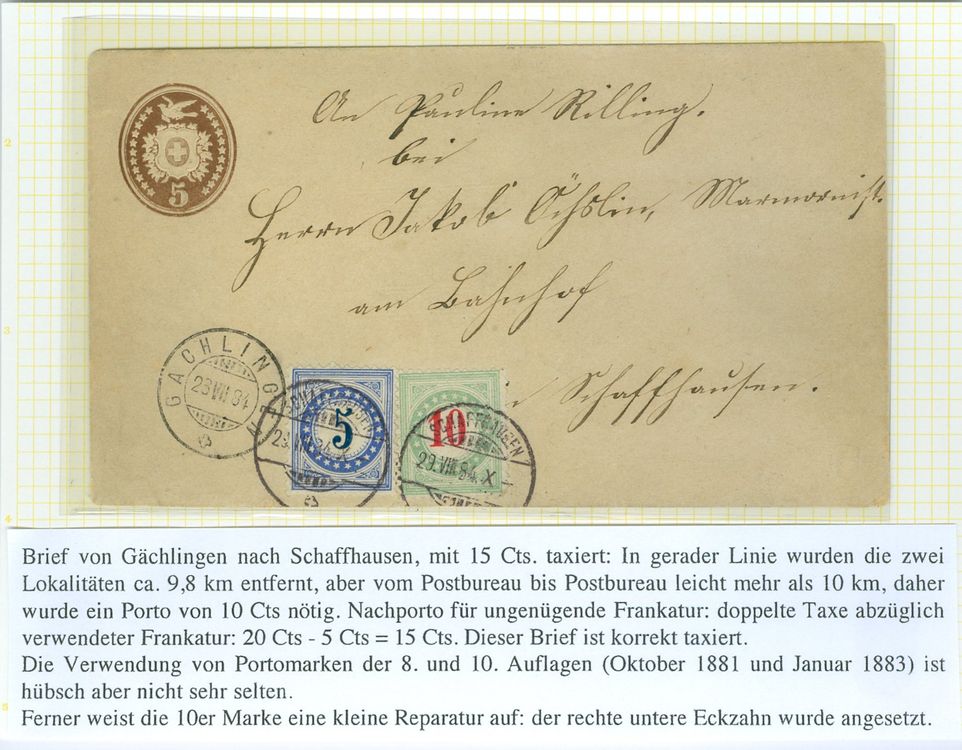 An Pauline Rilling.
bei
Herrn Jakob Öchslin, Marmorist.
am Bahnhof
Schaffhausen.
5
GÄCHLINGEN
28 VII 84
5
29. VII. 84. X
10
SCHAFFHAUSEN
29. VII. 84. X
Brief von Gächlingen nach Schaffhausen, mit 15 Cts. taxiert: In gerader Linie wurden die zwei
Lokalitäten ca. 9,8 km entfernt, aber vom Postbureau bis Postbureau leicht mehr als 10 km, daher
wurde ein Porto von 10 Cts nötig. Nachporto für ungenügende Frankatur: doppelte Taxe abzüglich
verwendeter Frankatur: 20 Cts - 5 Cts = 15 Cts. Dieser Brief ist korrekt taxiert.
Die Verwendung von Portomarken der 8. und 10. Auflagen (Oktober 1881 und Januar 1883) ist
hübsch aber nicht sehr selten.
Ferner weist die 10er Marke eine kleine Reparatur auf: der rechte untere Eckzahn wurde angesetzt.